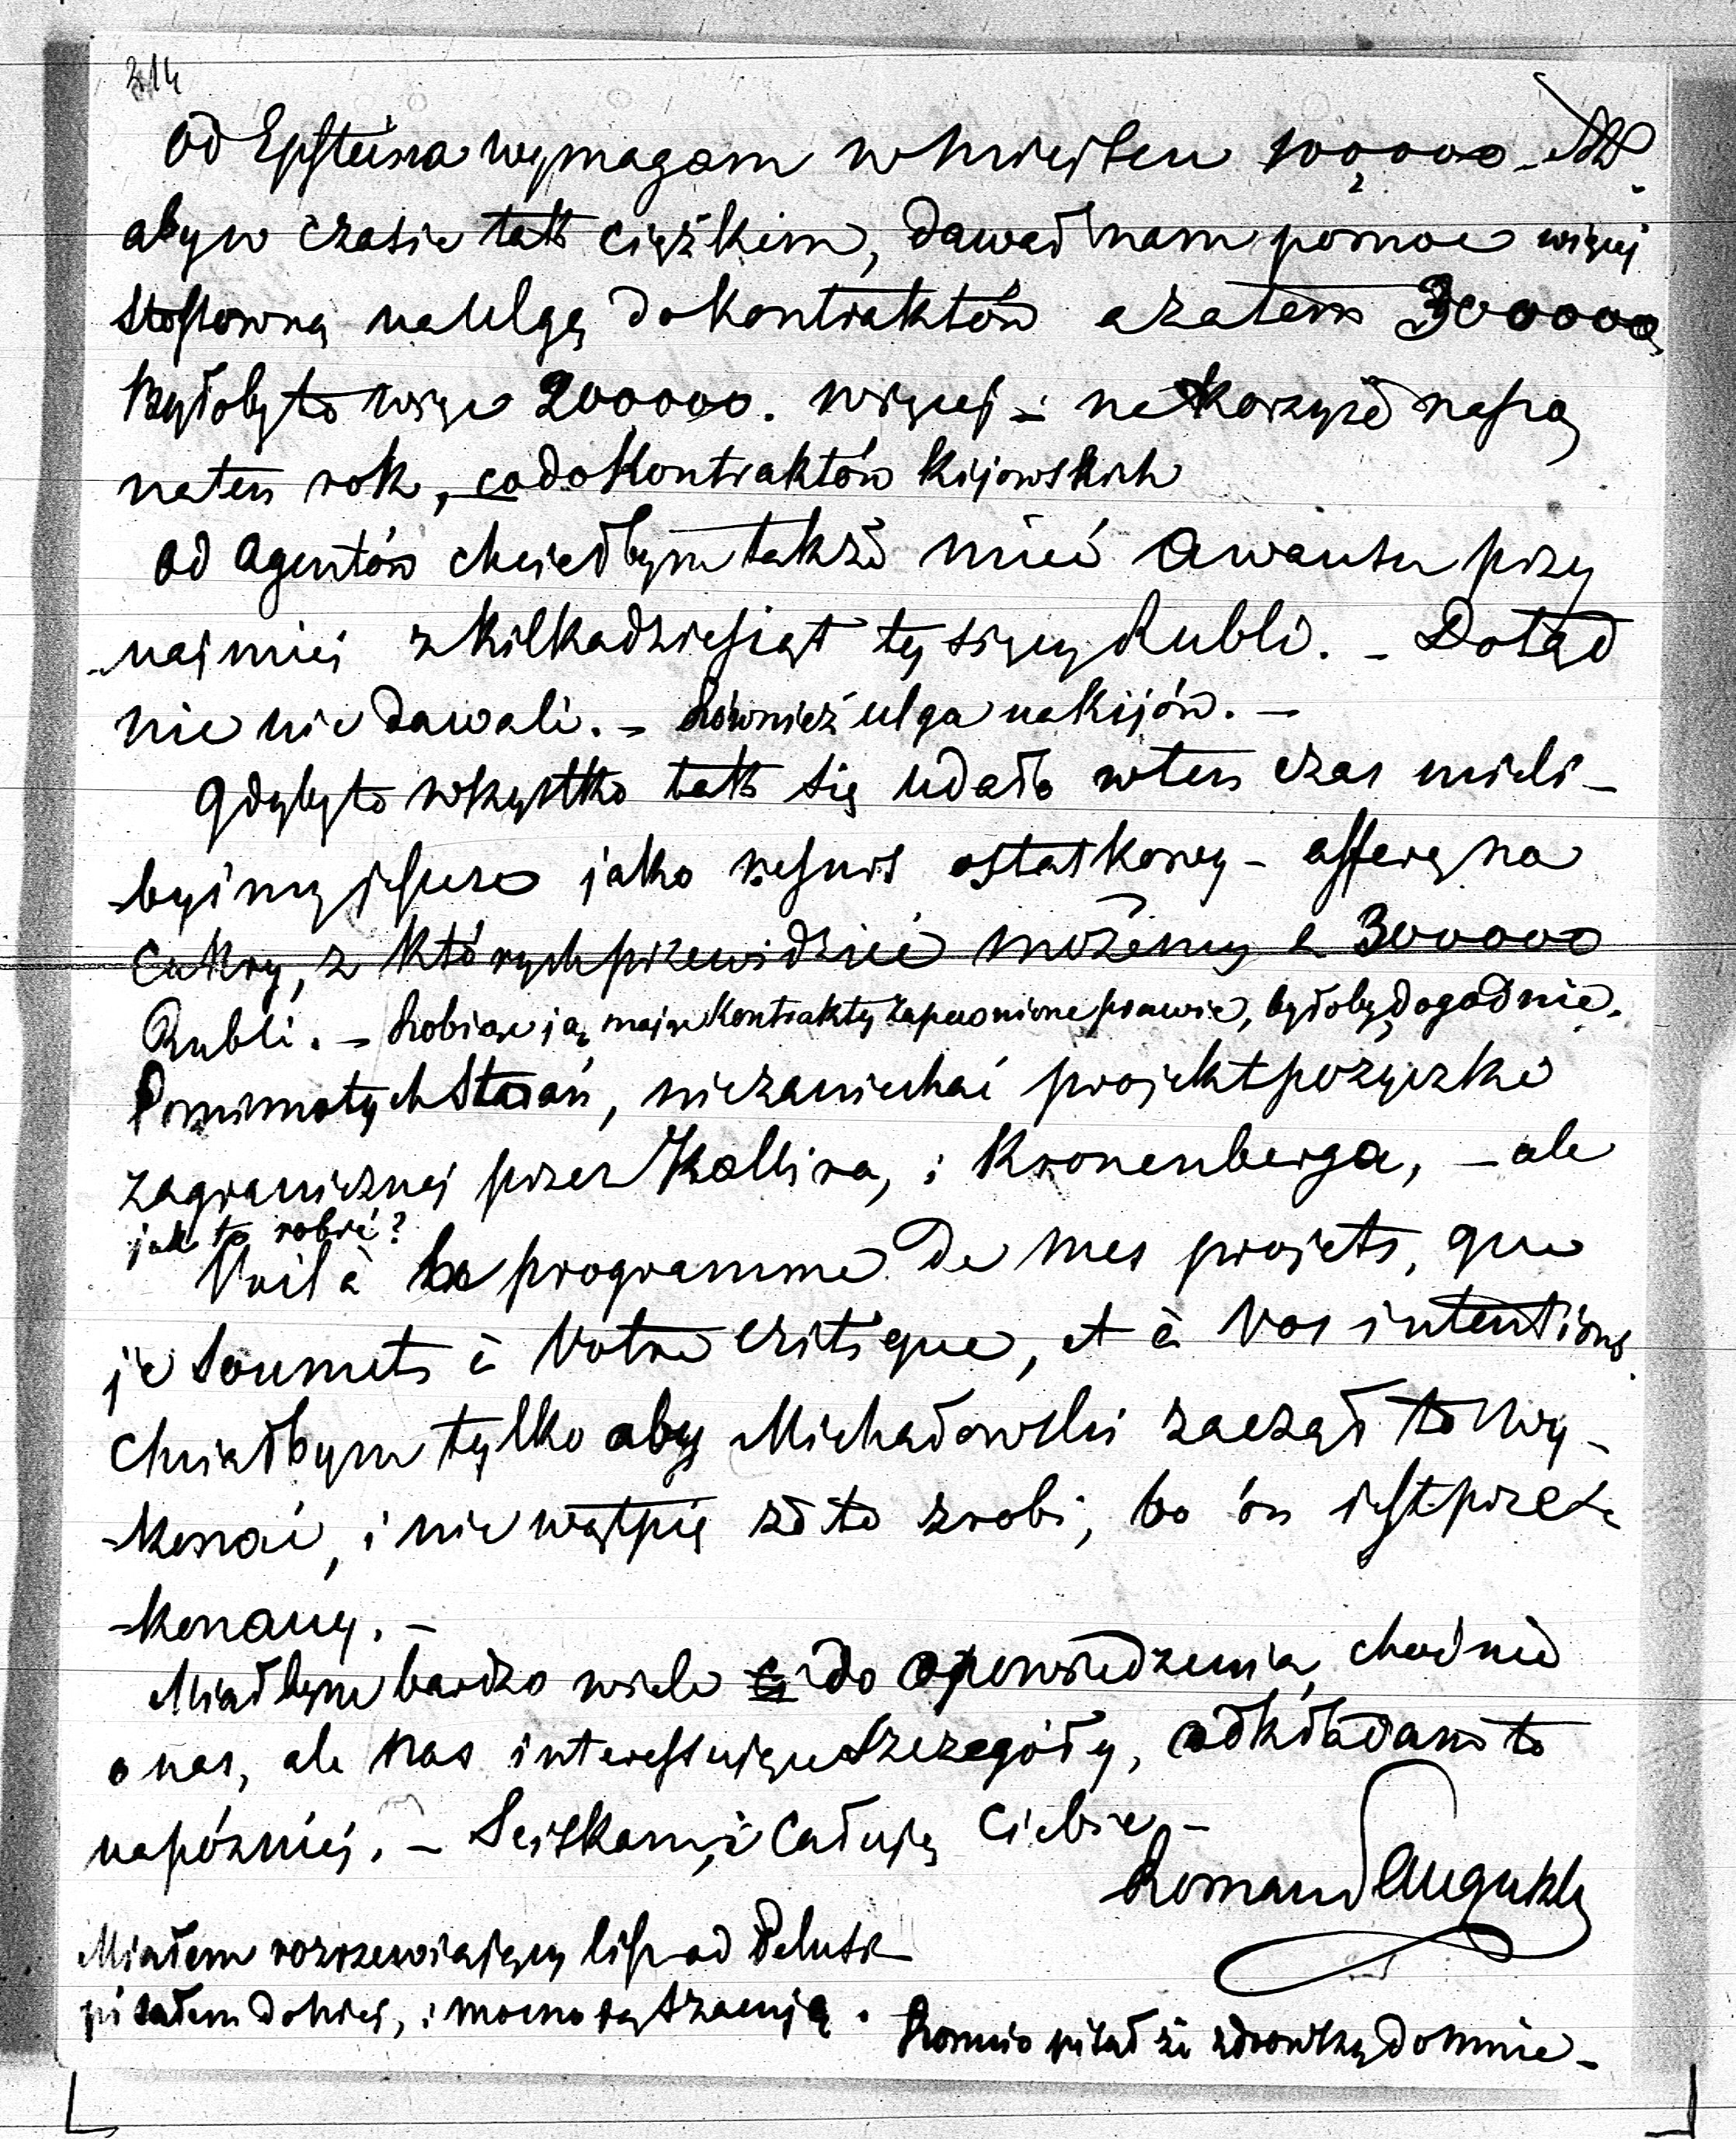 314
Od Epsteina wymagam w miejscu 100,000
aby w czasie tak ciężkim, dawał nam pomoc więcej
stosowną na ulgę do kontraktów a zatem 300000,
byłoby to więc 200000. więcej – na korzyść naszą
na ten rok, co do Kontraktów Kijowskich
Od Agentów chciałbym także mieć Awansu przy
najmniej z kilkadziesiąt tysięcy Rubli. – Dotąd
nic nie dawali. – Również ulga na Kijów. –
Gdyby to wszystko tak się udało wten czas mieli-
-byśmy jeszcze jako resurs ostatkowy – afferę na
cukry, z których przewidzieć możemy 300000
Rubli. – Robiąc ją, mając Kontrakty zapewnione prawie, byłoby dogodnie.
Pomimo tych Starań, niezaniechać projekt pożyczki
zagranicznej przez Kallira, i Kronenberga, – ale
jak to robić?
Voilà le programme de mes projets, que
je soumets à Votre critique, et à Vos intentions.
Chciałbym tylko aby Michałowski zaczął to wy-
-konać, i nie wątpię że to zrobi, bo ón jest prze-
-konany. –
Miałbym bardzo wiele do opowiedzenia, choć nie
o nas, ale nas interesujące szczegóły, odkładam to
napóźniej. – Sciskam, i całuję Ciebie –
Roman Sanguszko
Miałem rozrzewiający list od
pisałem do niej, i mocno ją szanuję.
Romcio pisał że zdrowszy do mnie –